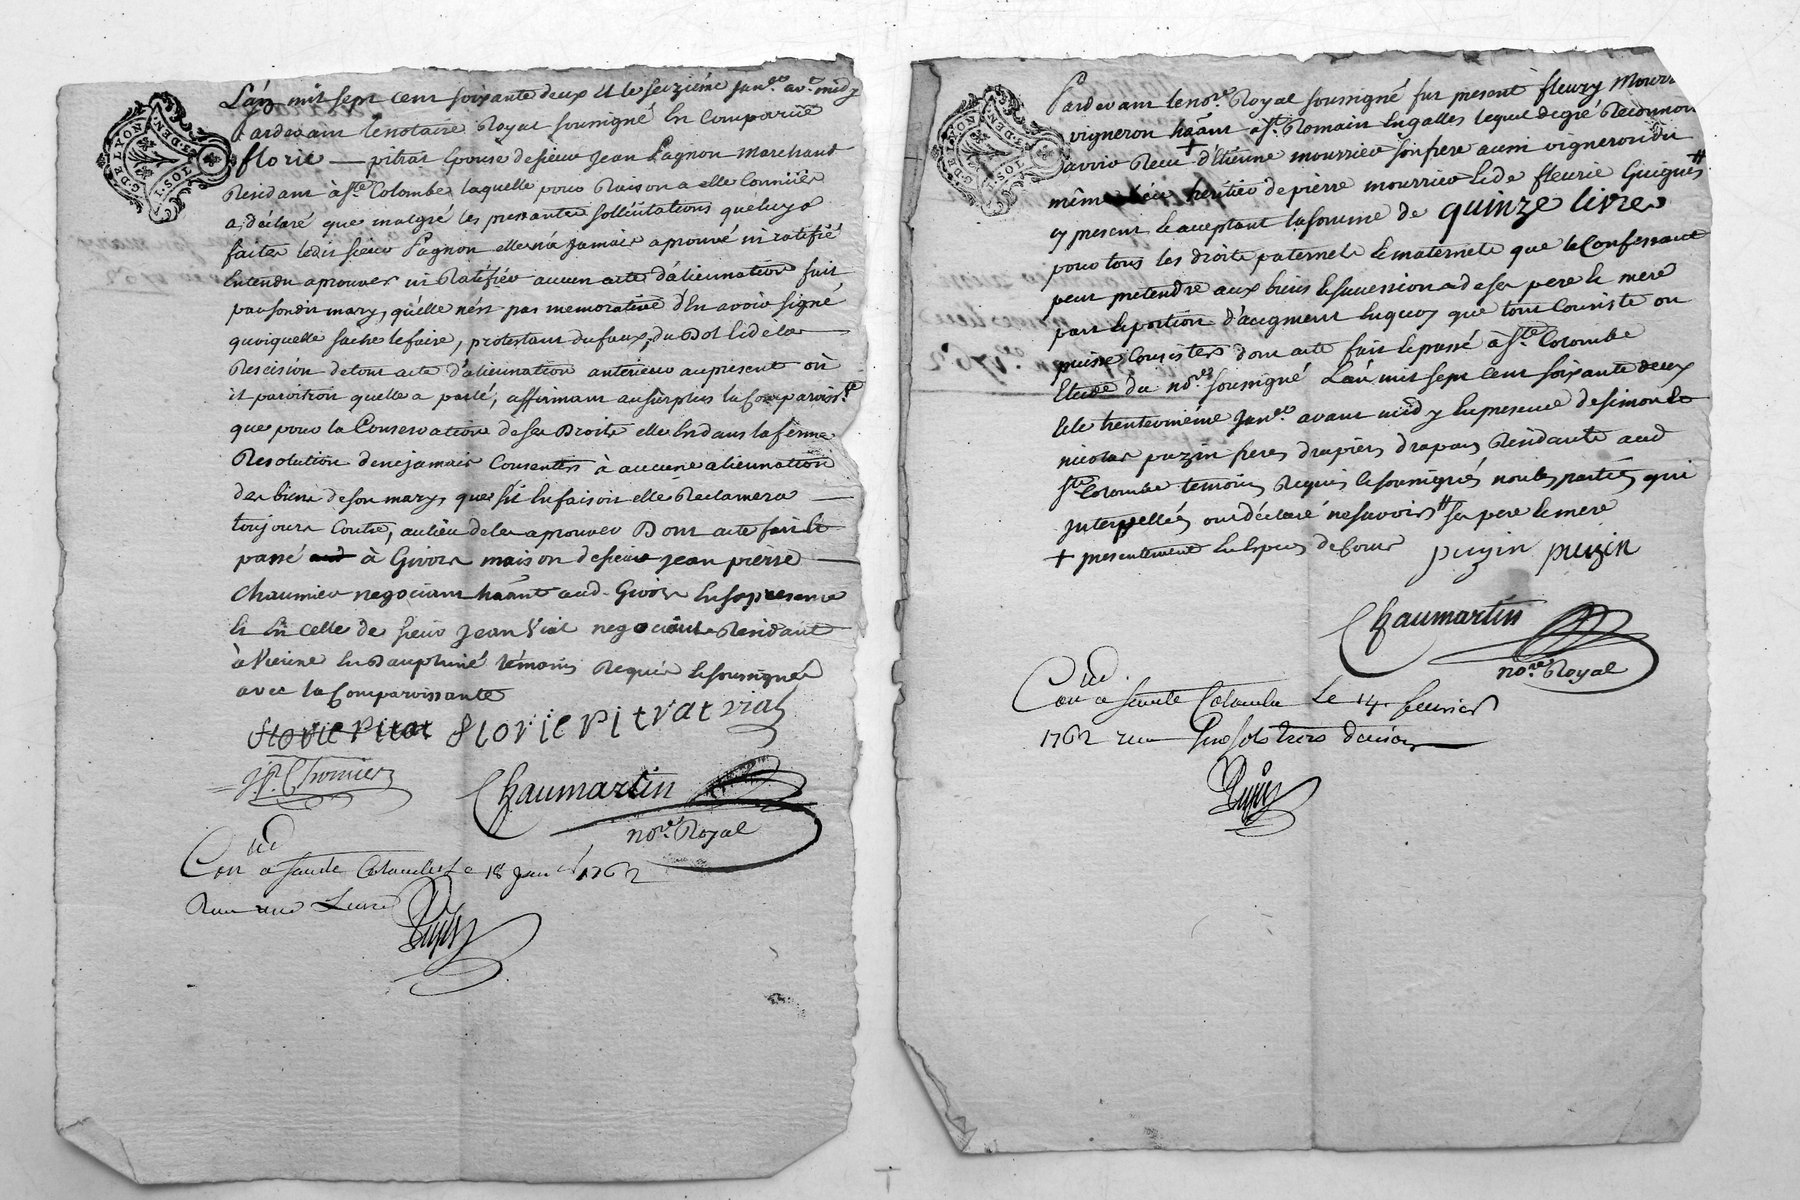 G. DE LYON
1. SOL 3. DEN.
L'an mil sept cent soixante deux et le seizième janer avt midy
Pardevant le notaire Royal soussigné En Comparüe
florie — pitrat Epouse de sieur Jean Pagnon Marchand
Residant à Ste Colombe, laquelle pour Raison a elle Connüe
a déclaré que malgré les pressantes sollicitations que luy a
faites ledit sieur Pagnon elle n'a Jamais aprouvé ni ratifié
Entendu aprouver ni Ratifier aucun acte d'alienation fait
par sondit mary, qu'elle n'est pas memorative d'En avoir signé
quoiquelle sache le faire, protestant du faux, du Dol Et de la
Rescision de tout acte d'alienation anterieur au present où
il paroitroit quelle a parlé, affirmant au surplus la Comparoisste
que pour la Conservation de ses Droits elle En dans la ferme
Resolution de ne jamais Consentir à aucune alienation
des biens de son mary, que s'il En faisoit elle Reclamera
toujours Contre, au lieu de les aprouver Dont acte fait Et
passé aud à Givors maison de sieur Jean pierre
Chaumier negociant hãant aud. Givors En sa presence
Et En celle de sieur Jean Vial negociant Residant
à Vienne En Dauphiné témoins Requis Et soussignés
avec la Comparoissante
florie Pitrat florie pitrat vial
Chaumartin
nore Royal
Conllé a sainte Colombe Le 18 janer 1762
Reçu une Livre
G. DE LYON
1. SOL 3. DEN.
Pardevant le nore Royal soussigné fut present fleury Mourr
vigneron hãant à St Romain En galles lequel de gré Reconnoit
avoir Receu + d'Etienne mourrier son frere aussi vigneron du
même lieu heritier de pierre mourrier Et de fleurie Guigues #
cy present Et aceptant la somme de quinze livres
pour tous les droits paternels Et maternels que le Confessant
peut pretendre aux biens Et succession de ses pere Et mere
part Et portion d'augment En quoy que tout Consiste ou
puisse Consister dont acte fait Et passé à Ste Colombe
Etude du nore soussigné L'an mil sept cent soixante deux
Et le trente uniéme janer avant midy En presence de simon Et
nicolas puzin freres drapiers drapans Residants aud
Ste Colombe témoins Requis Et soussignés non les parties qui
Interpellés ont déclaré ne savoir # ses pere Et mere
+ presentement En Especes de Cours puzin puzin
Chaumartin
nore Royal
Conllé a sainte Colombe Le 14 fevrier
1762 reçu